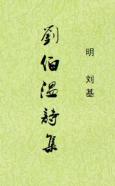 明 刘基
劉伯温詩集